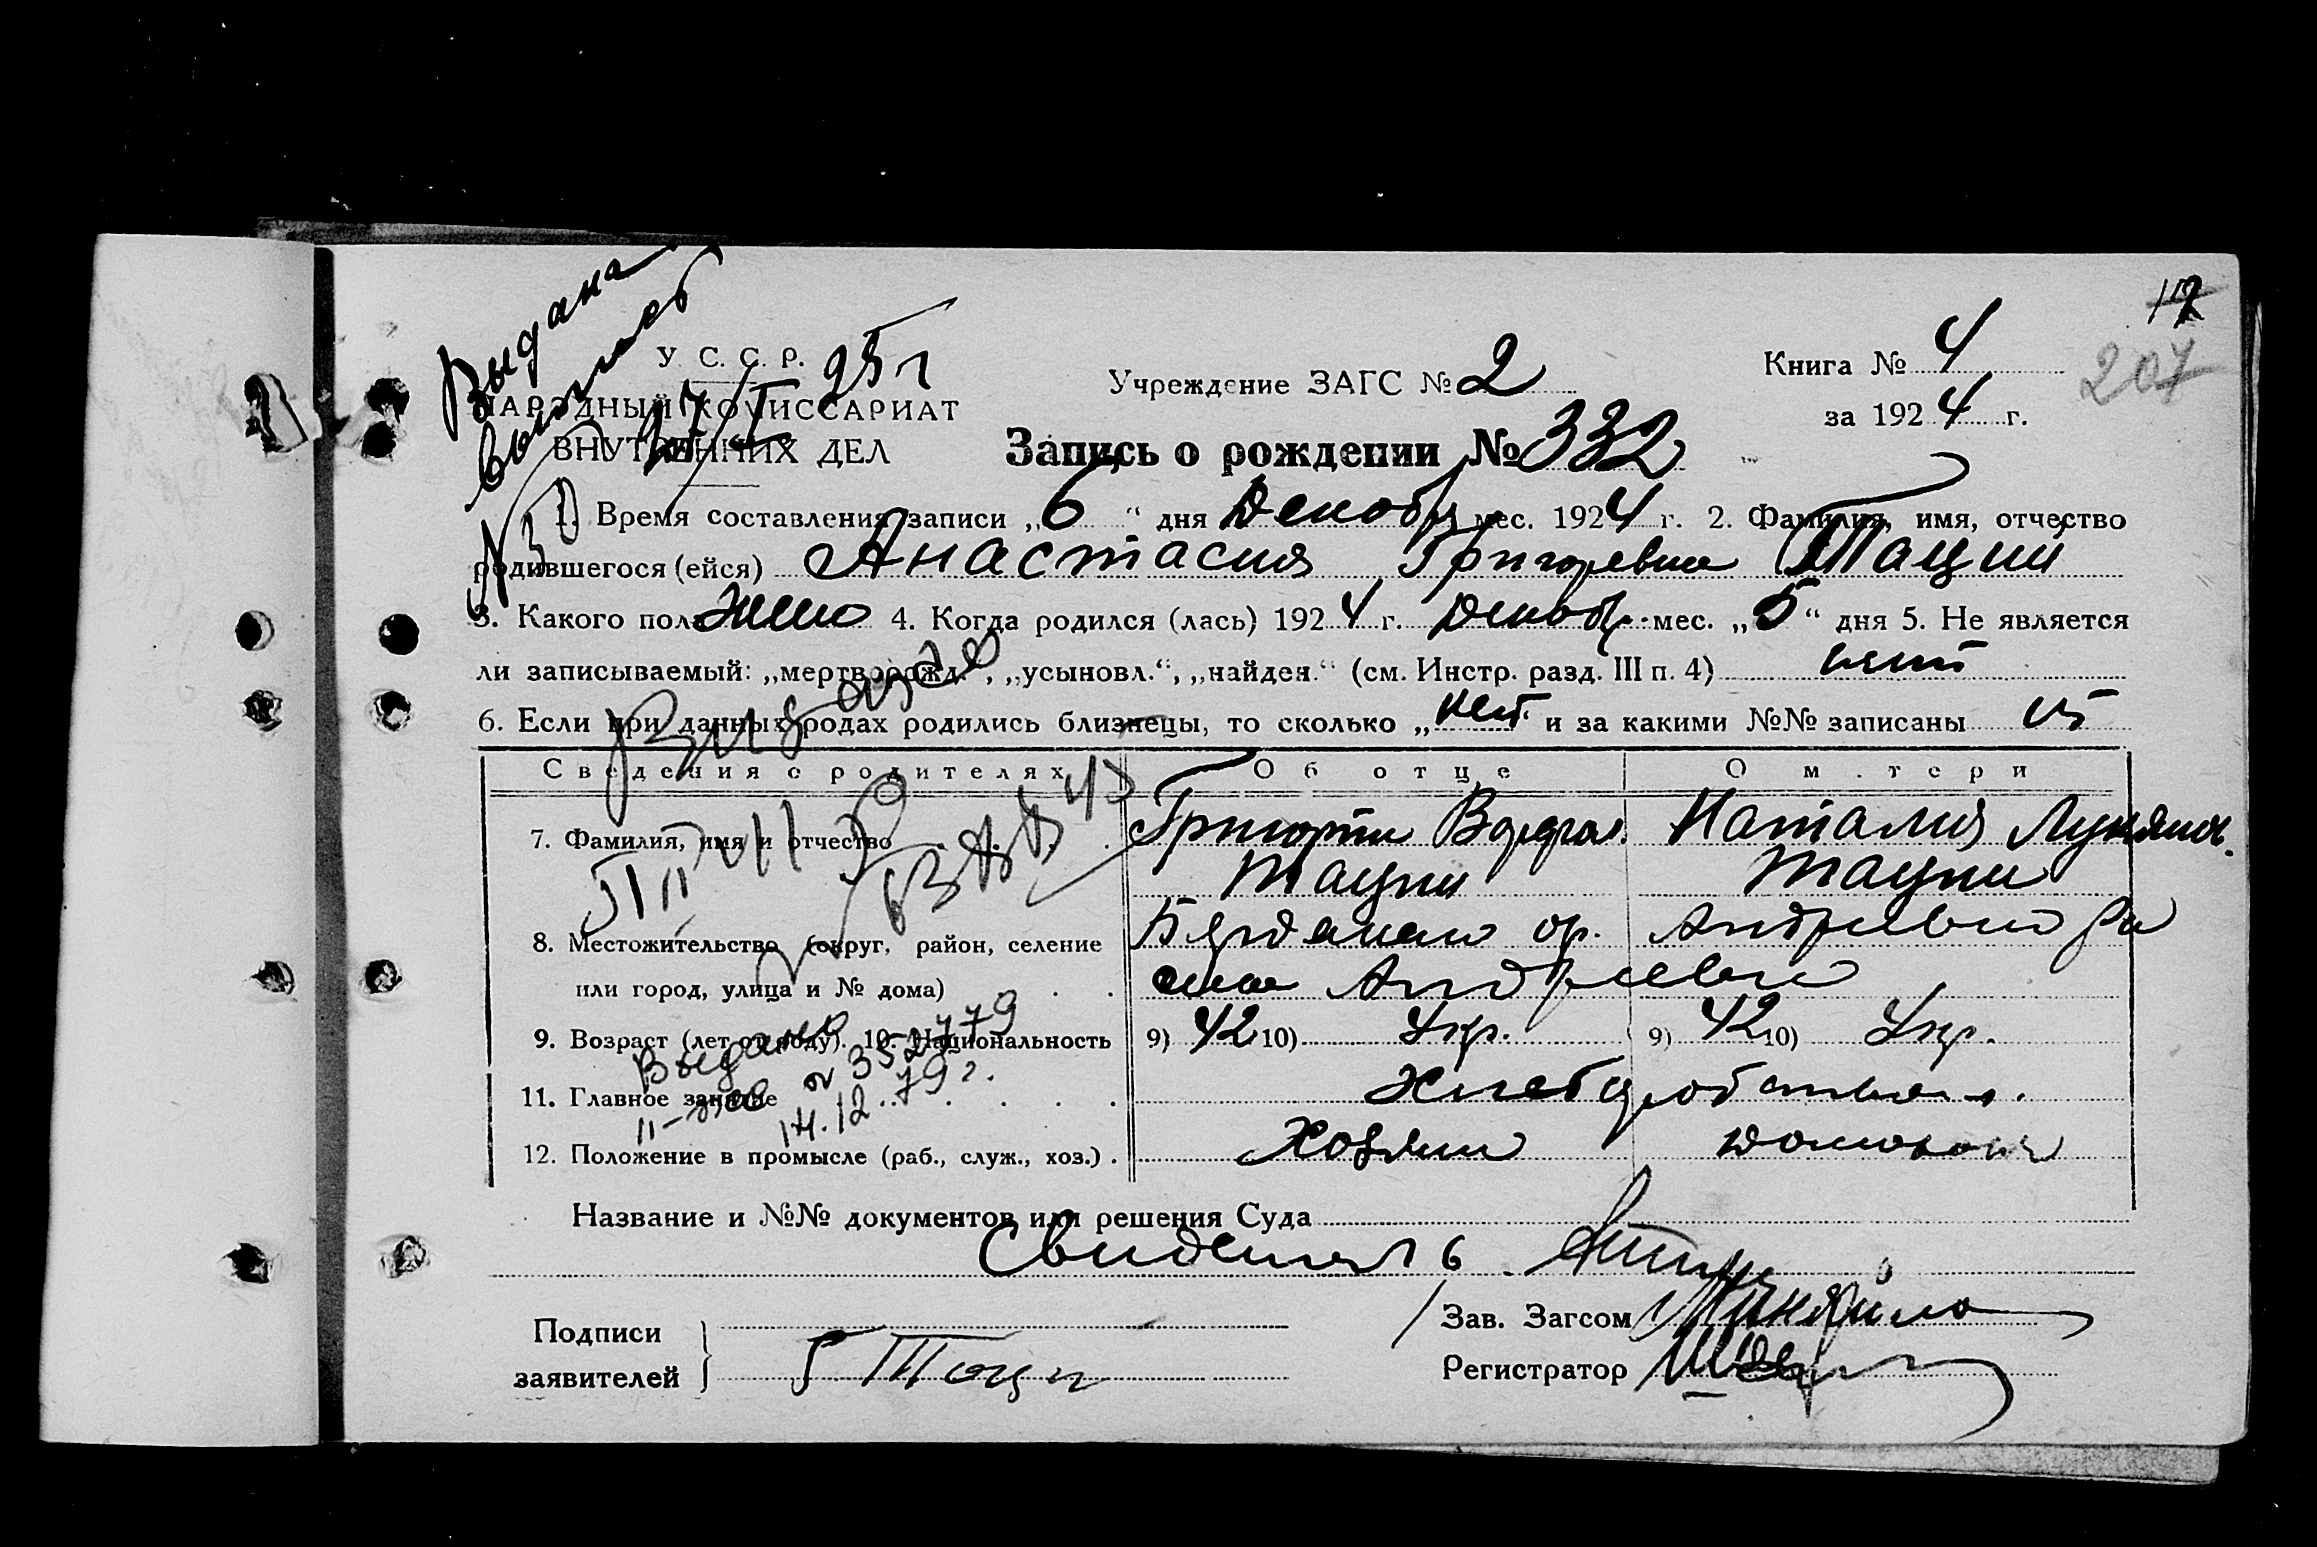 17
207
Выдана
выпись
27/I 25 г
У. С. С. Р.
НАРОДНЫЙ КОМИССАРИАТ
ВНУТРЕННИХ ДЕЛ
Учреждение ЗАГС № 2
Книга № 4
за 1924 г.
Запись о рождении № 332
1. Время составления записи „6“ дня Декабр мес. 1924 г. 2. Фамилия, имя, отчество
родившегося (ейся) Анастасия Григоревна Таций
3. Какого пола Жен 4. Когда родился (лась) 1924 г. Декабр. мес. „5“ дня 5. Не является
ли записываемый: „мертворожд.“, „усыновл.“, „найден.“ (см. Инстр. разд. III п. 4) нет
6. Если при данных родах родились близнецы, то сколько „нет“ и за какими №№ записаны
Сведения о родителях Об отце О матери
7. Фамилия, имя и отчество Григорти Наталия
Тации Тации
8. Местожительство (округ, район, селение Бердянско ор. Андреевки
или город, улица и № дома) Андреевки
9. Возраст (лет от роду). 10. Национальность 9) 42 10) Укр. 9) 42 10) Укр.
Выдано
II-ное № 352779
14.12.79 г.
11. Главное занятие Хлебороб
12. Положение в промысле (раб., служ., хоз.) Хозяин домохоз
Название и №№ документов или решения Суда
Свидетел
Подписи
заявителей
Г Таци
Зав. Загсом
Регистратор